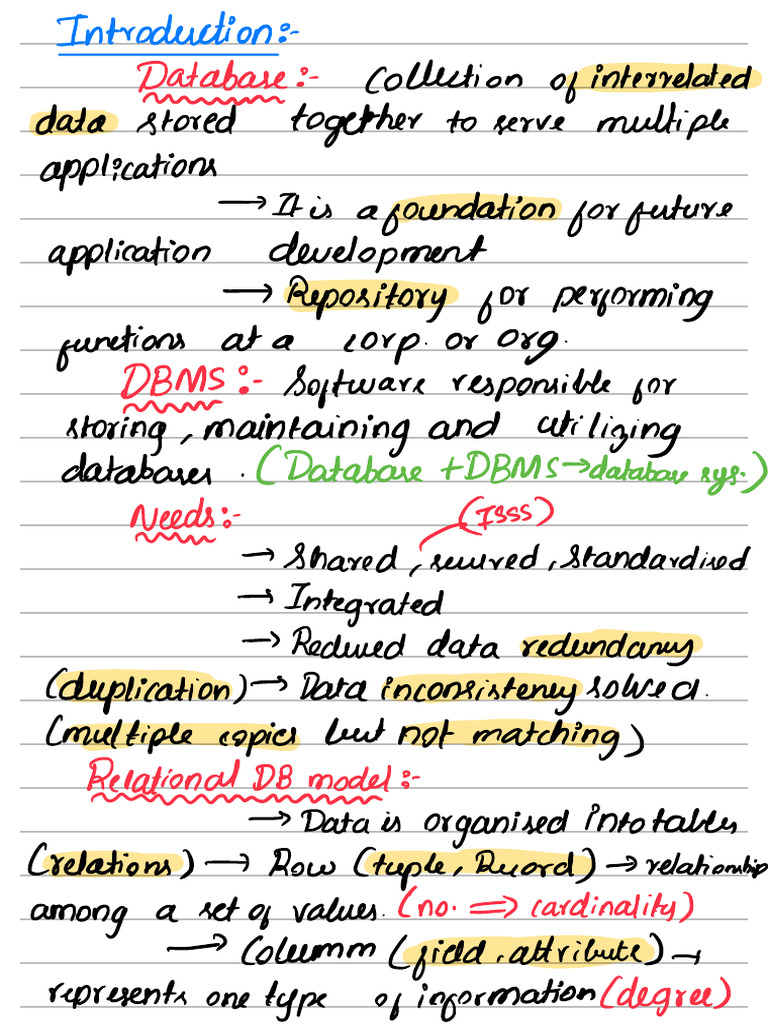 Introduction:-
Database:- Collection of interrelated
data stored together to serve multiple
applications
→ It is a foundation for future
application development
→ Repository for performing
functions at a corp. or org.
DBMS:- Software responsible for
storing, maintaining and utilizing
databases. (Database + DBMS → database sys.)
Needs:- (ISSS)
→ Shared, secured, standardised
→ Integrated
→ Reduced data redundancy
(duplication) → Data inconsistency solved.
(multiple copies but not matching)
Relational DB model:-
→ Data is organised into tables
(relations) → Row (tuple, Record) → relationship
among a set of values. (no. ⇒ cardinality)
→ Columm (field, attribute) →
represents one type of information (degree)